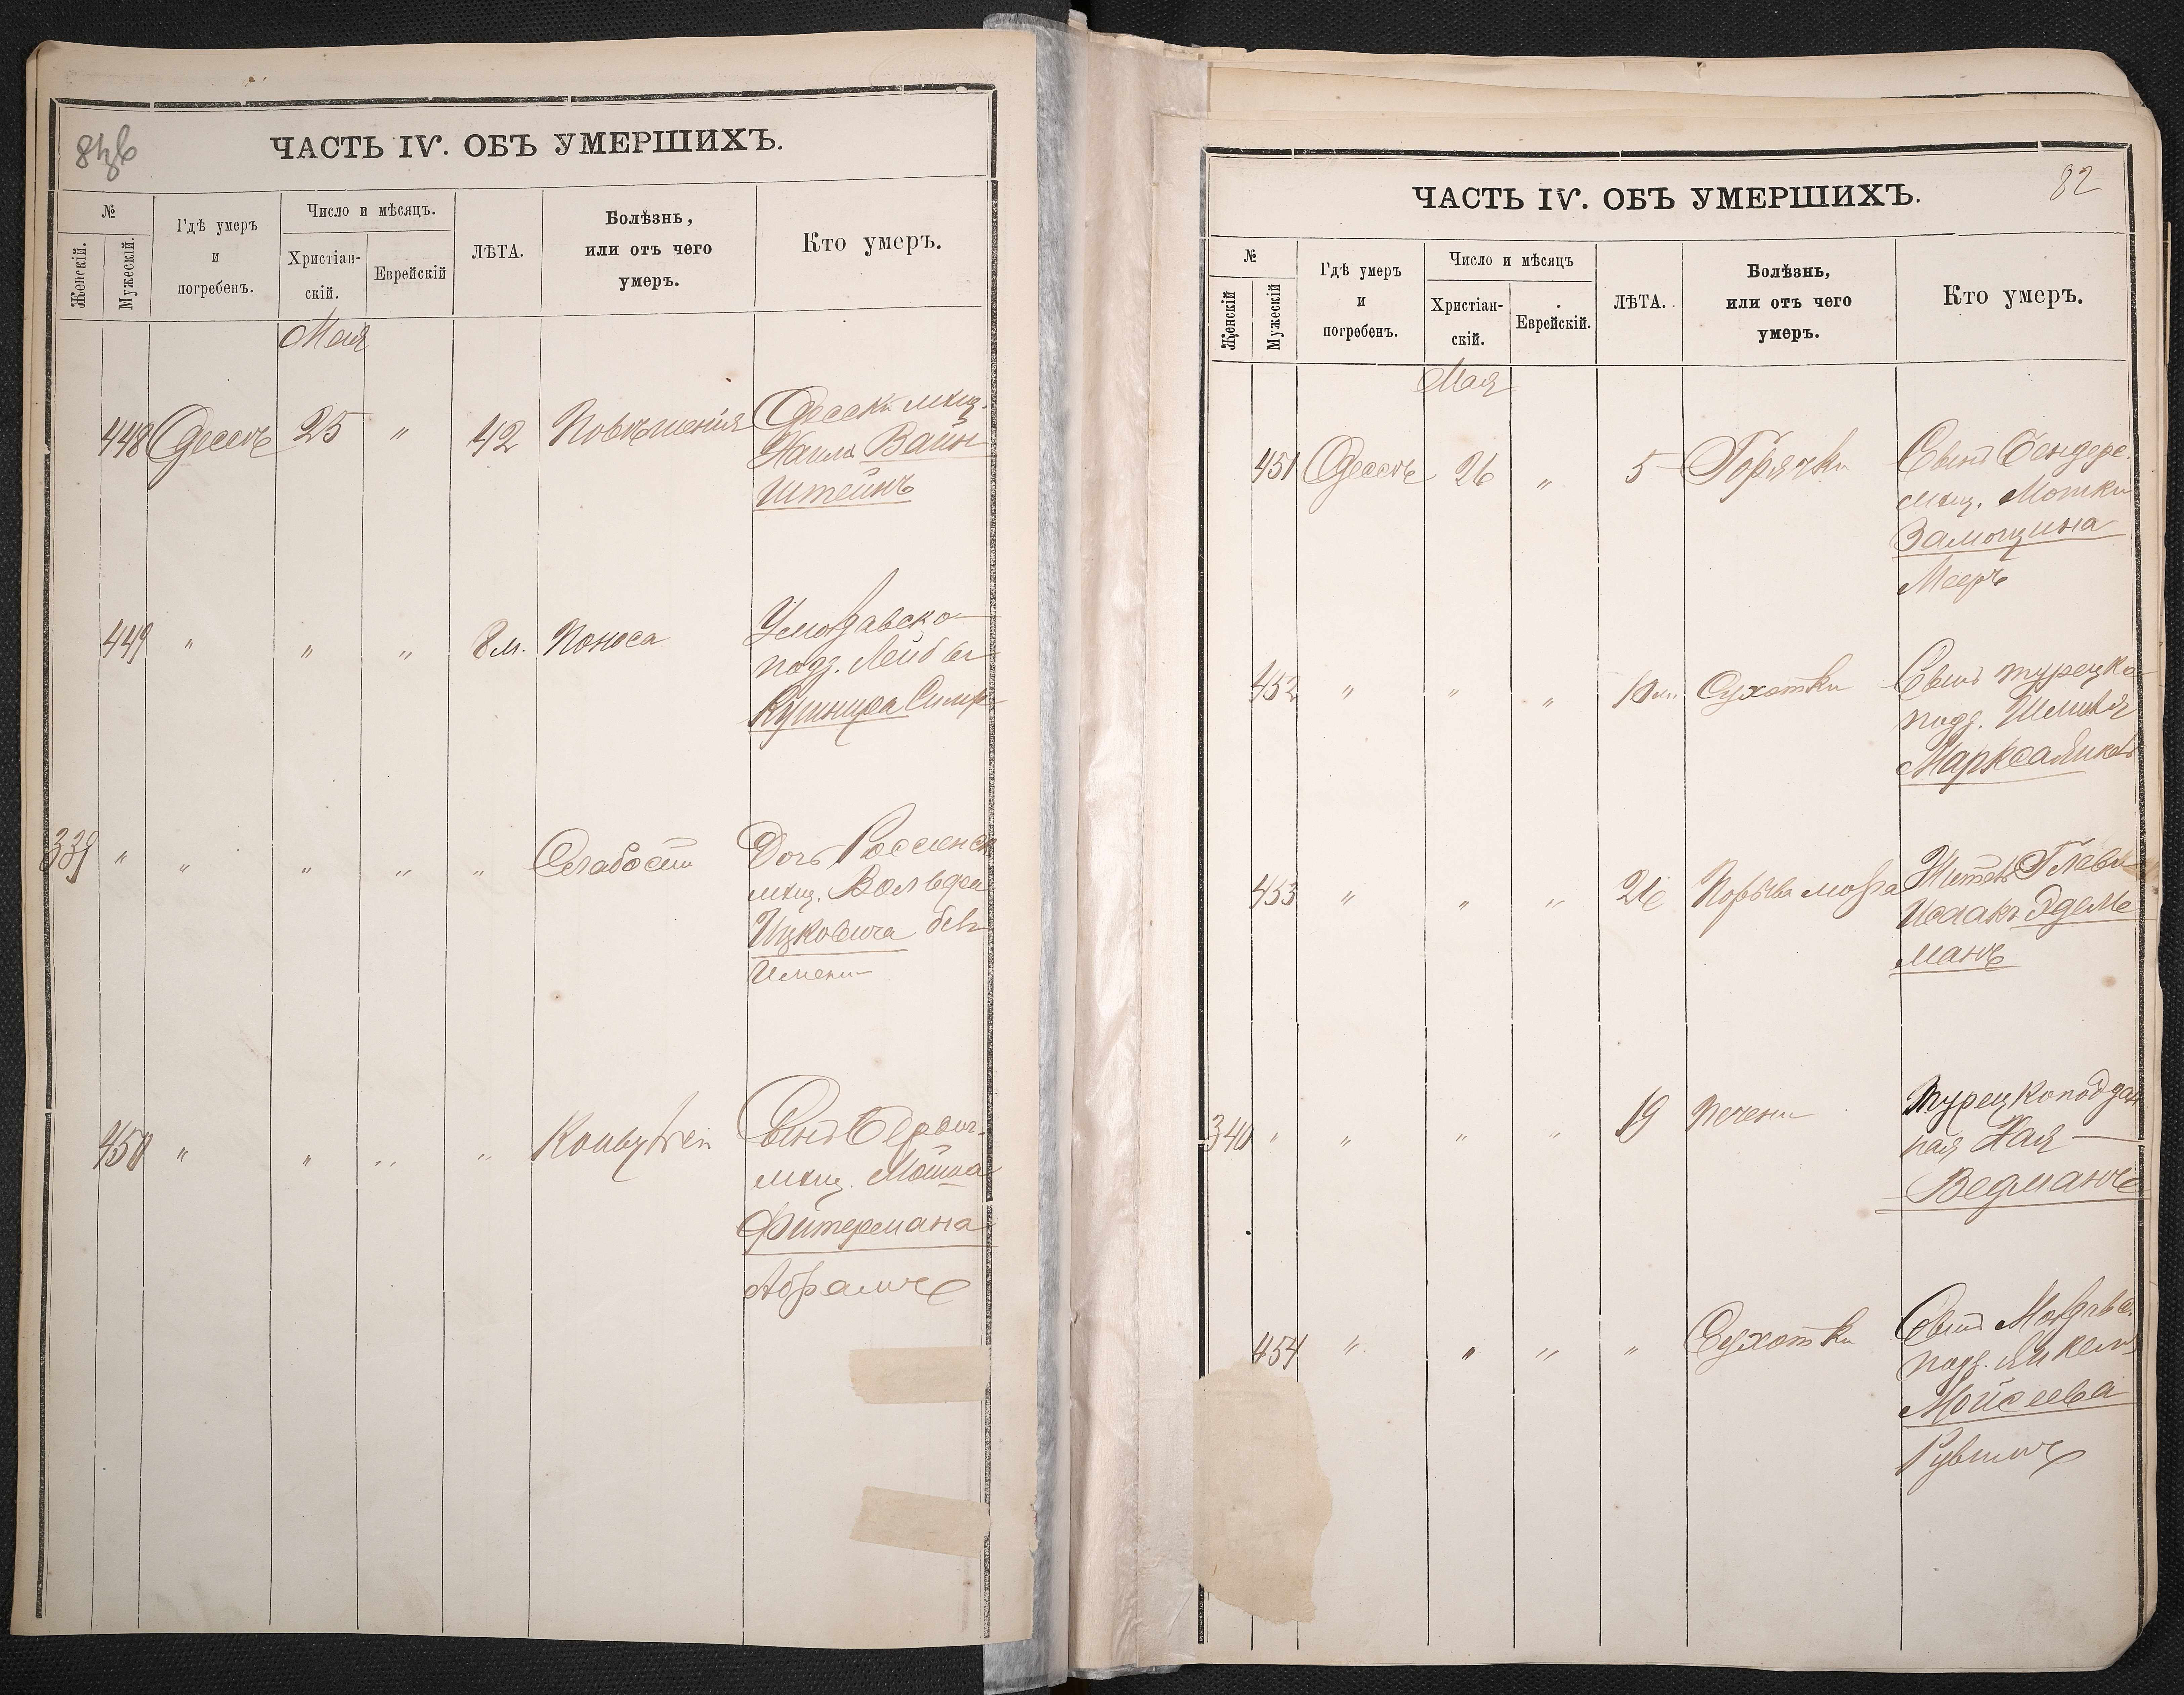 ЧАСТЬ IV. ОБЪ УМЕРШИХЪ.
№
Женскій.
Мужескій.
Гдѣ умеръ
и
погребенъ.
Число и мѣсяцъ.
Христіан-
скій.
Еврейскій
ЛѢТА.
Болѣзнь,
или отъ чего
умеръ.
Кто умеръ.
Мая
448 Одессѣ 25 " 42 Повѣшенія Одесск. мѣщ.
Вайн
штейнъ
449 " " " 8 м. Поноса
подд. Лейбы
Кушнира
339 " " " " " Слабости Дочь Россіенск
мѣщ. Вольфа
Ицковича безъ
Имени
450 " " " " Сынъ
мѣщ. Мошка
Фитермана
Абрамъ
82
ЧАСТЬ IV. ОБЪ УМЕРШИХЪ.
№
Женскій
Мужескій
Гдѣ умеръ
и
погребенъ.
Число и мѣсяцъ
Христіан-
скій.
Еврейскій.
ЛѢТА.
Болѣзнь,
или отъ чего
умеръ.
Кто умеръ.
Мая
451 Одессѣ 26 " 5 Горячки Сынъ Бендерс.
мѣщ. Мошки
Замощина
Мееръ
452 " " " 10 м. Сухотки Сынъ турецко
подд. Шмиля
453 " " " Порыва мозга
Исаакъ Эдель
манъ
340 " " " " 19 Печени Турецкоподдан
ная Хая
Ведманъ
454 " " " " Сухотки Сынъ Молдавс.
подд. Янкеля
Мойсеева
Рувинъ